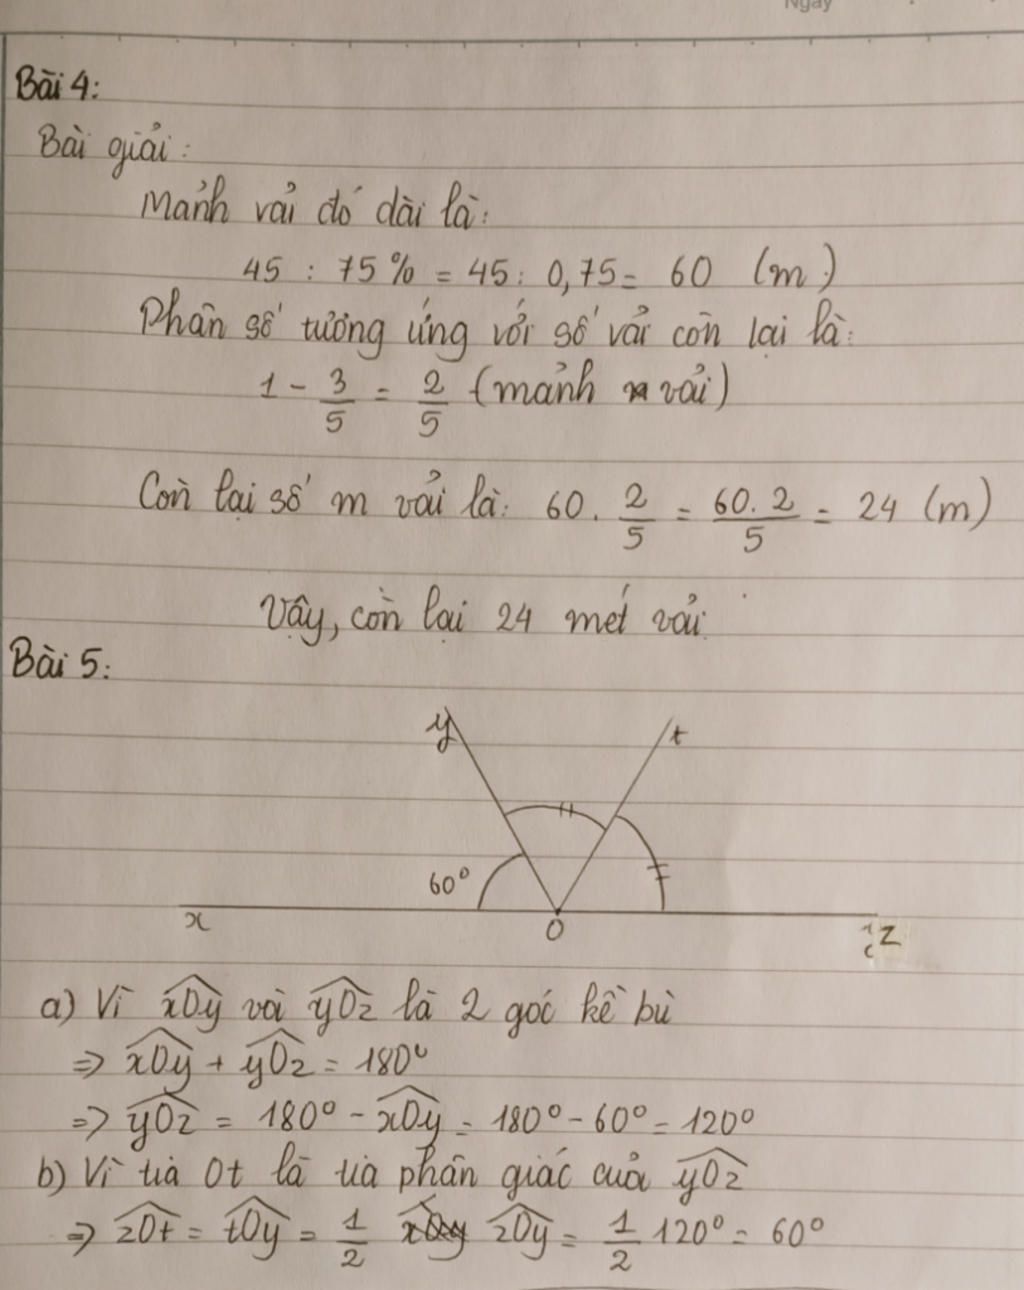 Ngày
Bài 4:
Bài giải:
Mảnh vải đó dài là:
45 : 75% = 45 : 0,75 = 60 (m)
Phân số tương ứng với số vải còn lại là:
1 - 3/5 = 2/5 (mảnh vải)
Còn lại số m vải là: 60 . 2/5 = 60.2/5 = 24 (m)
Vậy, còn lại 24 mét vải.
Bài 5:
y t
60°
x O z
a) Vì xOy và yOz là 2 góc kề bù
=> xOy + yOz = 180°
=> yOz = 180° - xOy = 180° - 60° = 120°
b) Vì tia Ot là tia phân giác của yOz
=> zOt = tOy = 1/2 zOy = 1/2 120° = 60°